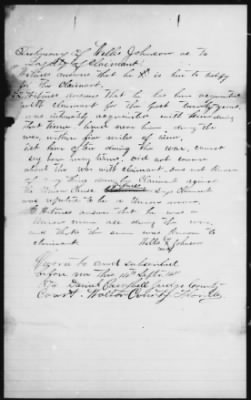 Testimony of Willis Johnson as to
Loyalty of Claimant
Witness answers that he is here to testify
for the Claimant.
Witness answers that he has been acquainted
with claimant for the past twenty years
was intimately acquainted with him during
that time, lived near him during the
war, within few miles of him,
how often during the war, cannot
say how many times, did not converse
about the war with claimant, does not know
of any thing done by Claimant against
the Union Cause Witness says Claimant
was reputed to be a Union man.
Witness answers that he was a
Union man during the war,
and that the same was known to
claimant.
Willis Johnson
Sworn to and subscribed
before me this 14th Sept.
Daniel Campbell Judge County
Court. Walton County Florida